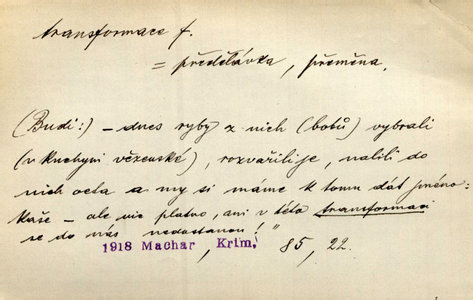 transformace f.
= předělávka, přeměna.
(Budi:) – dnes ryby z nich (bobů) vybrali
(v kuchyni vězeňské), rozvařili je, nalili do
nich octa a my si máme k tomu dát jméno
kaše – ale nic platno, ani v této transformaci
se do nás nedostanou!"
1918 Machar, Krim. 85, 22.